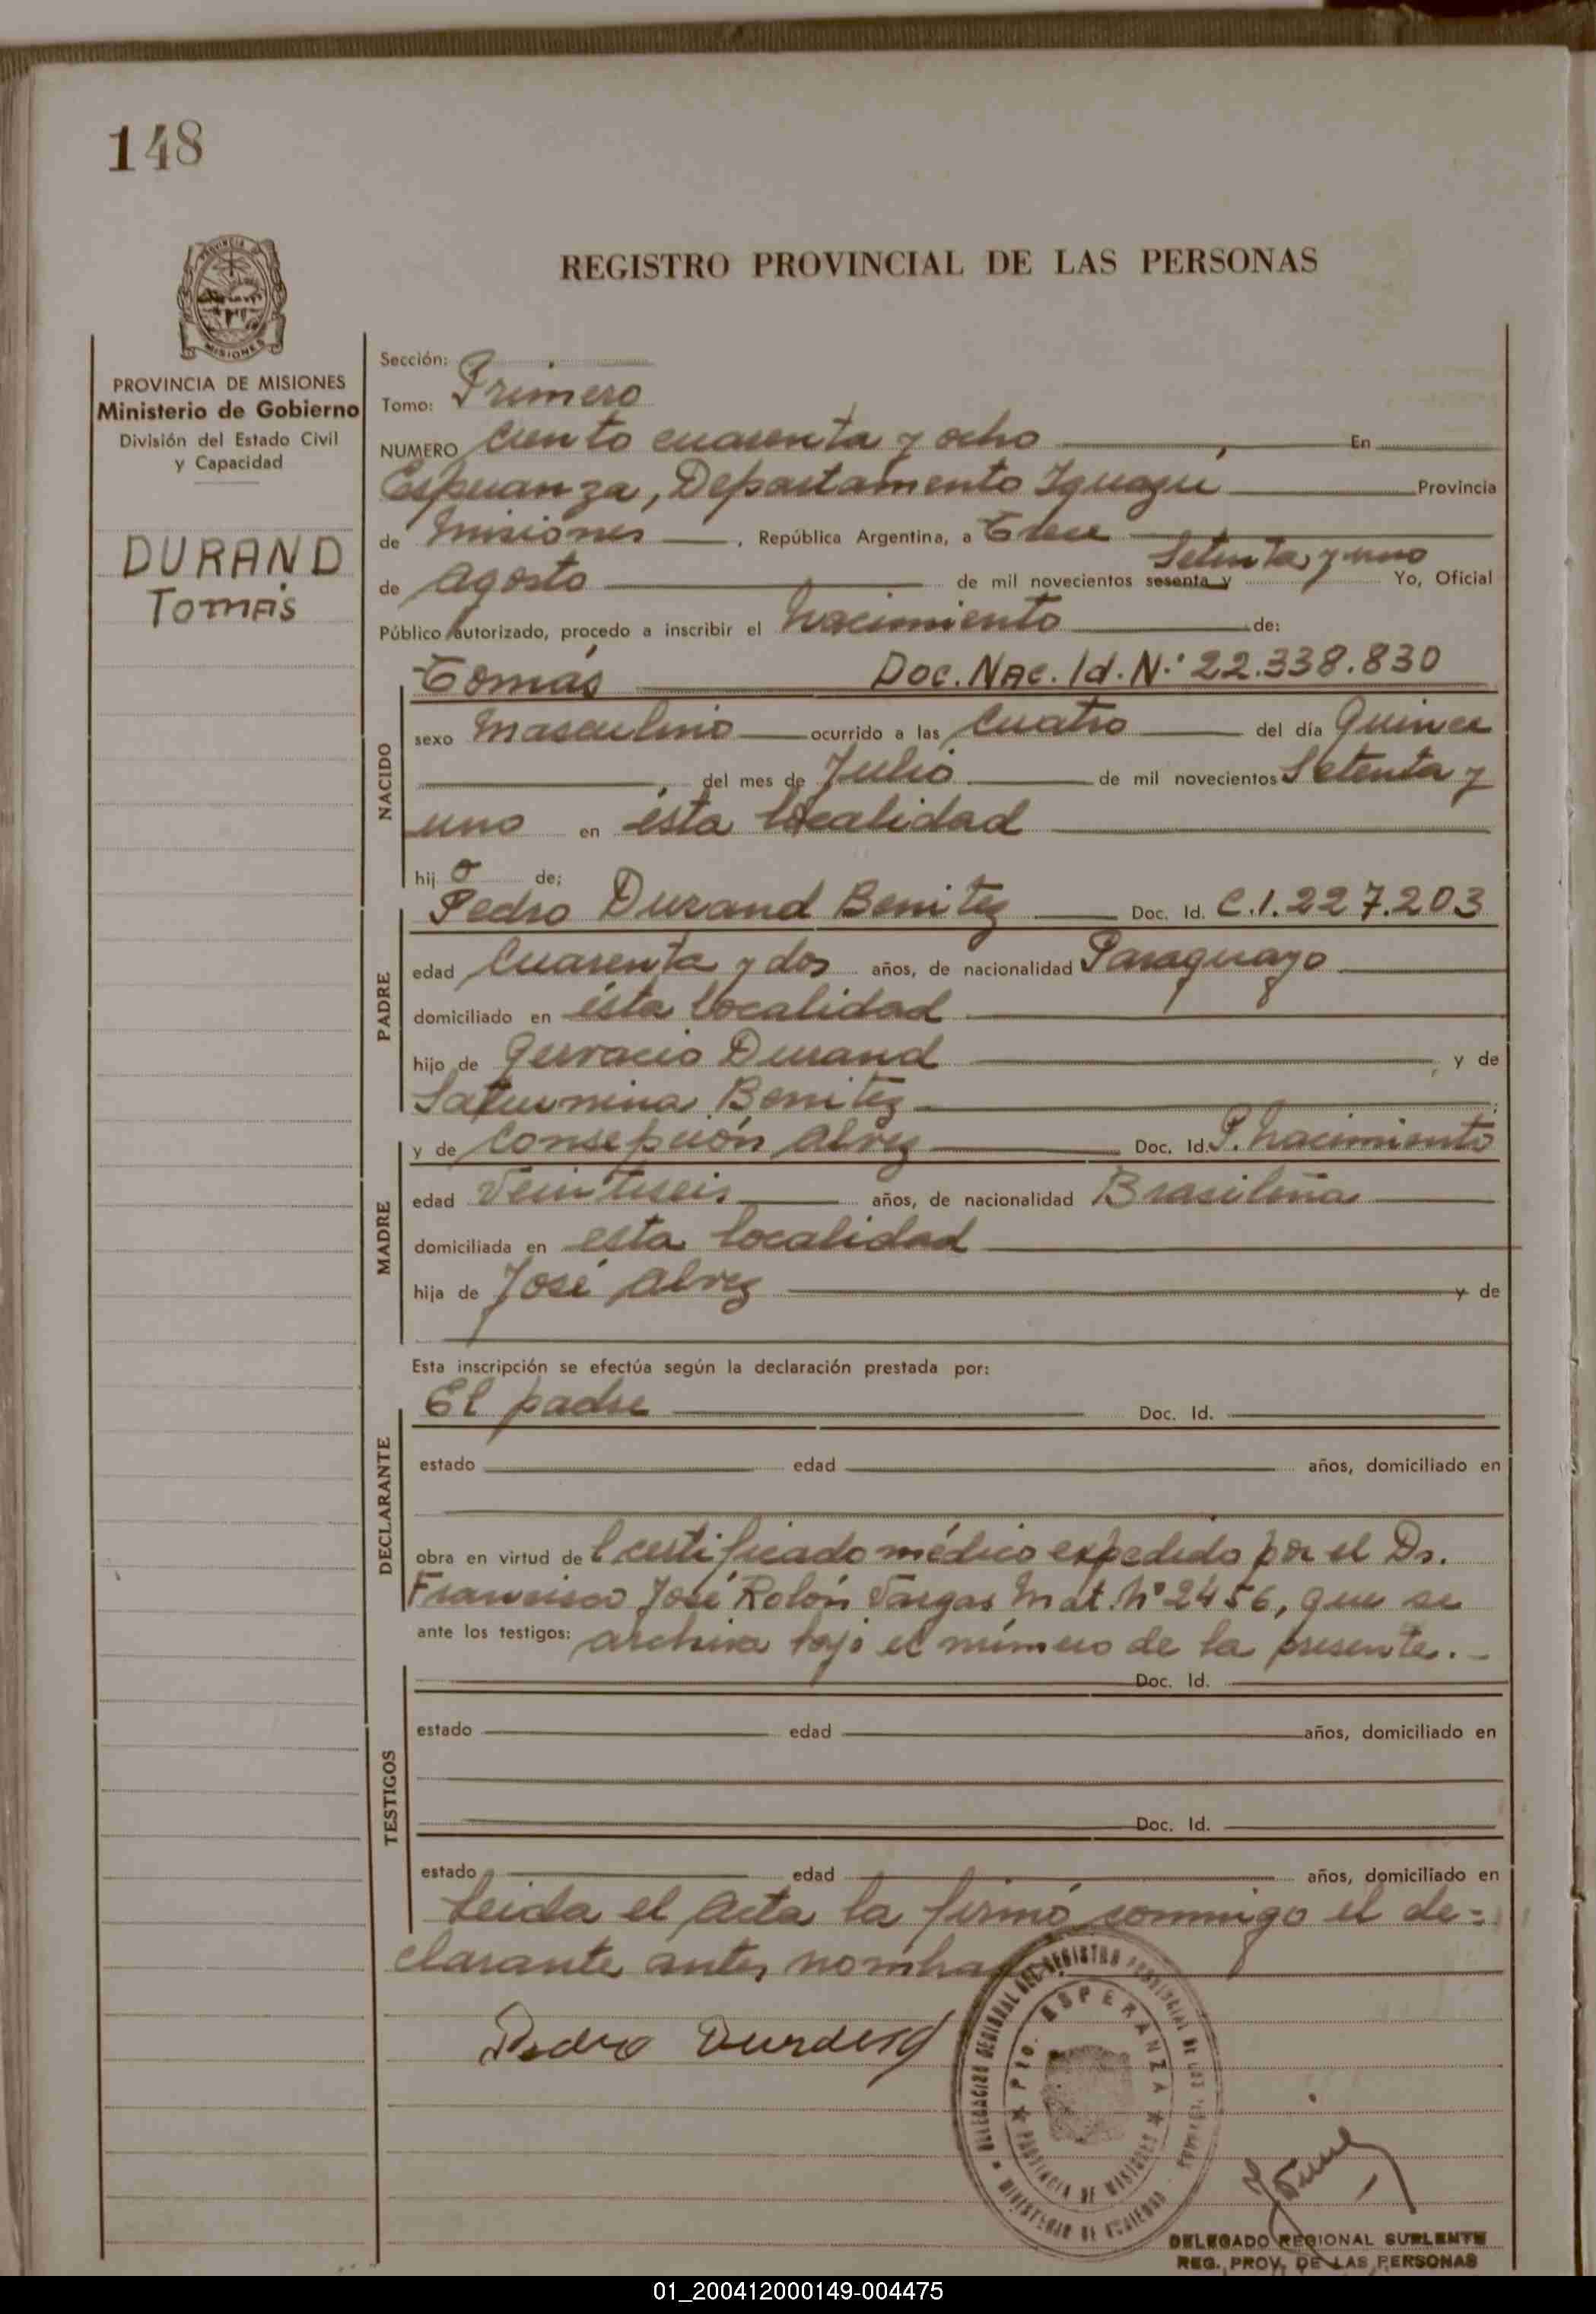 148
MISIONES
REGISTRO PROVINCIAL DE LAS PERSONAS
PROVINCIA DE MISIONES
Ministerio de Gobierno
División del Estado Civil
y Capacidad
DURAND
Tomás
Sección:
Tomo: Primero
NUMERO Ciento cuarenta y ocho En
Esperanza, Departamento Iguazú Provincia
de Misiones , República Argentina, a Trece
de Agosto de mil novecientos sesenta y Setenta y uno Yo, Oficial
Público autorizado, procedo a inscribir el Nacimiento de:
NACIDO
Tomás Doc. Nac. Id. N.º 22.338.830
sexo Masculino ocurrido a las Cuatro del día Quince
del mes de Julio de mil novecientos Setenta y
uno en ésta localidad
hij o de;
PADRE
Pedro Durand Benitez Doc. Id. C.I. 227.203
edad Cuarenta y dos años, de nacionalidad Paraguayo
domiciliado en ésta localidad
hijo de Gervacio Durand y de
Saturnina Benitez
MADRE
y de Consepción Alvez Doc. Id. P. Nacimiento
edad Veintiseis años, de nacionalidad Brasileña
domiciliada en esta localidad
hija de José Alvez y de
Esta inscripción se efectúa según la declaración prestada por:
DECLARANTE
El padre Doc. Id.
estado edad años, domiciliado en
obra en virtud de l certificado médico expedido por el Dr.
Francisco José Rolón Vargas Mat. Nº 2456, que se
ante los testigos: archiva bajo el número de la presente.-
TESTIGOS
Doc. Id.
estado edad años, domiciliado en
Doc. Id.
estado edad años, domiciliado en
Leida el Acta la firmó conmigo el de=
clarante antes
Pedro
PTO. ESPERANZA
PROVINCIA DE MISIONES
MINISTERIO DE GOBIERNO
DELEGADO REGIONAL SUPLENTE
REG. PROV. DE LAS PERSONAS
01_200412000149-004475